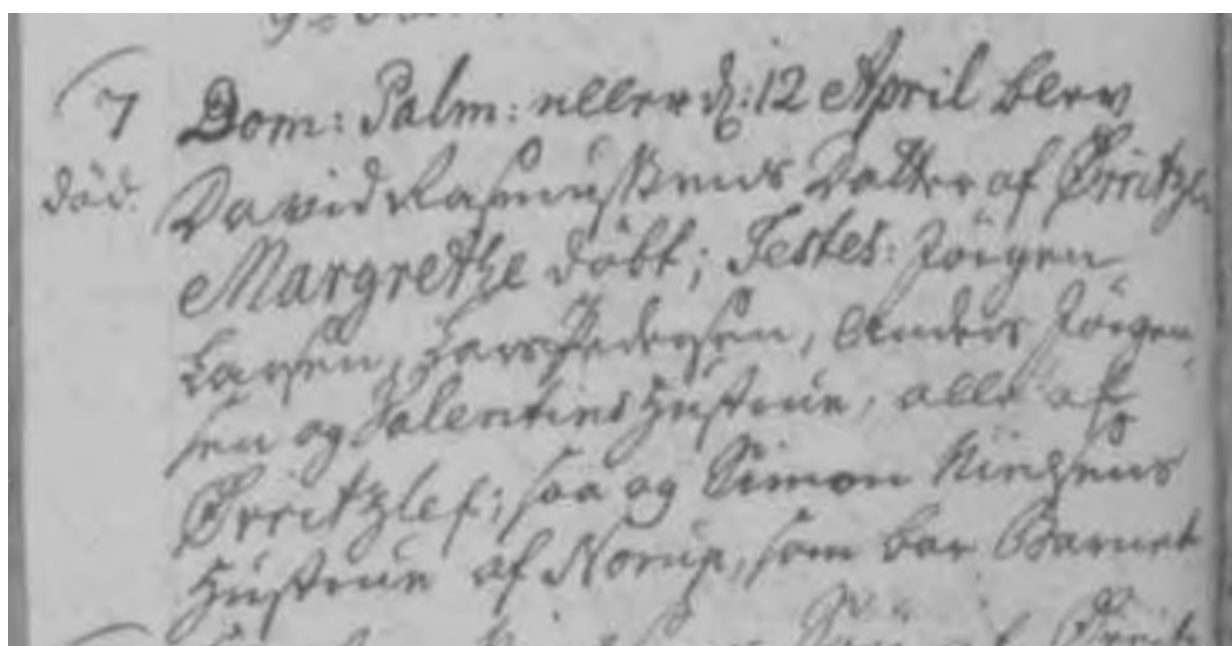 7 Dom: Palm: eller d: 12 April blev
död. David Rasmussens Datter af Ørritzl.
Margrethe döbt; Testes: Jörgen
Larsen, Lars Pedersen, Anders Jörgen
sen og Valentins Hustrue, alle af
Ørritzlef; saa og Simon
Hustrue af Norup, som bar Barnet